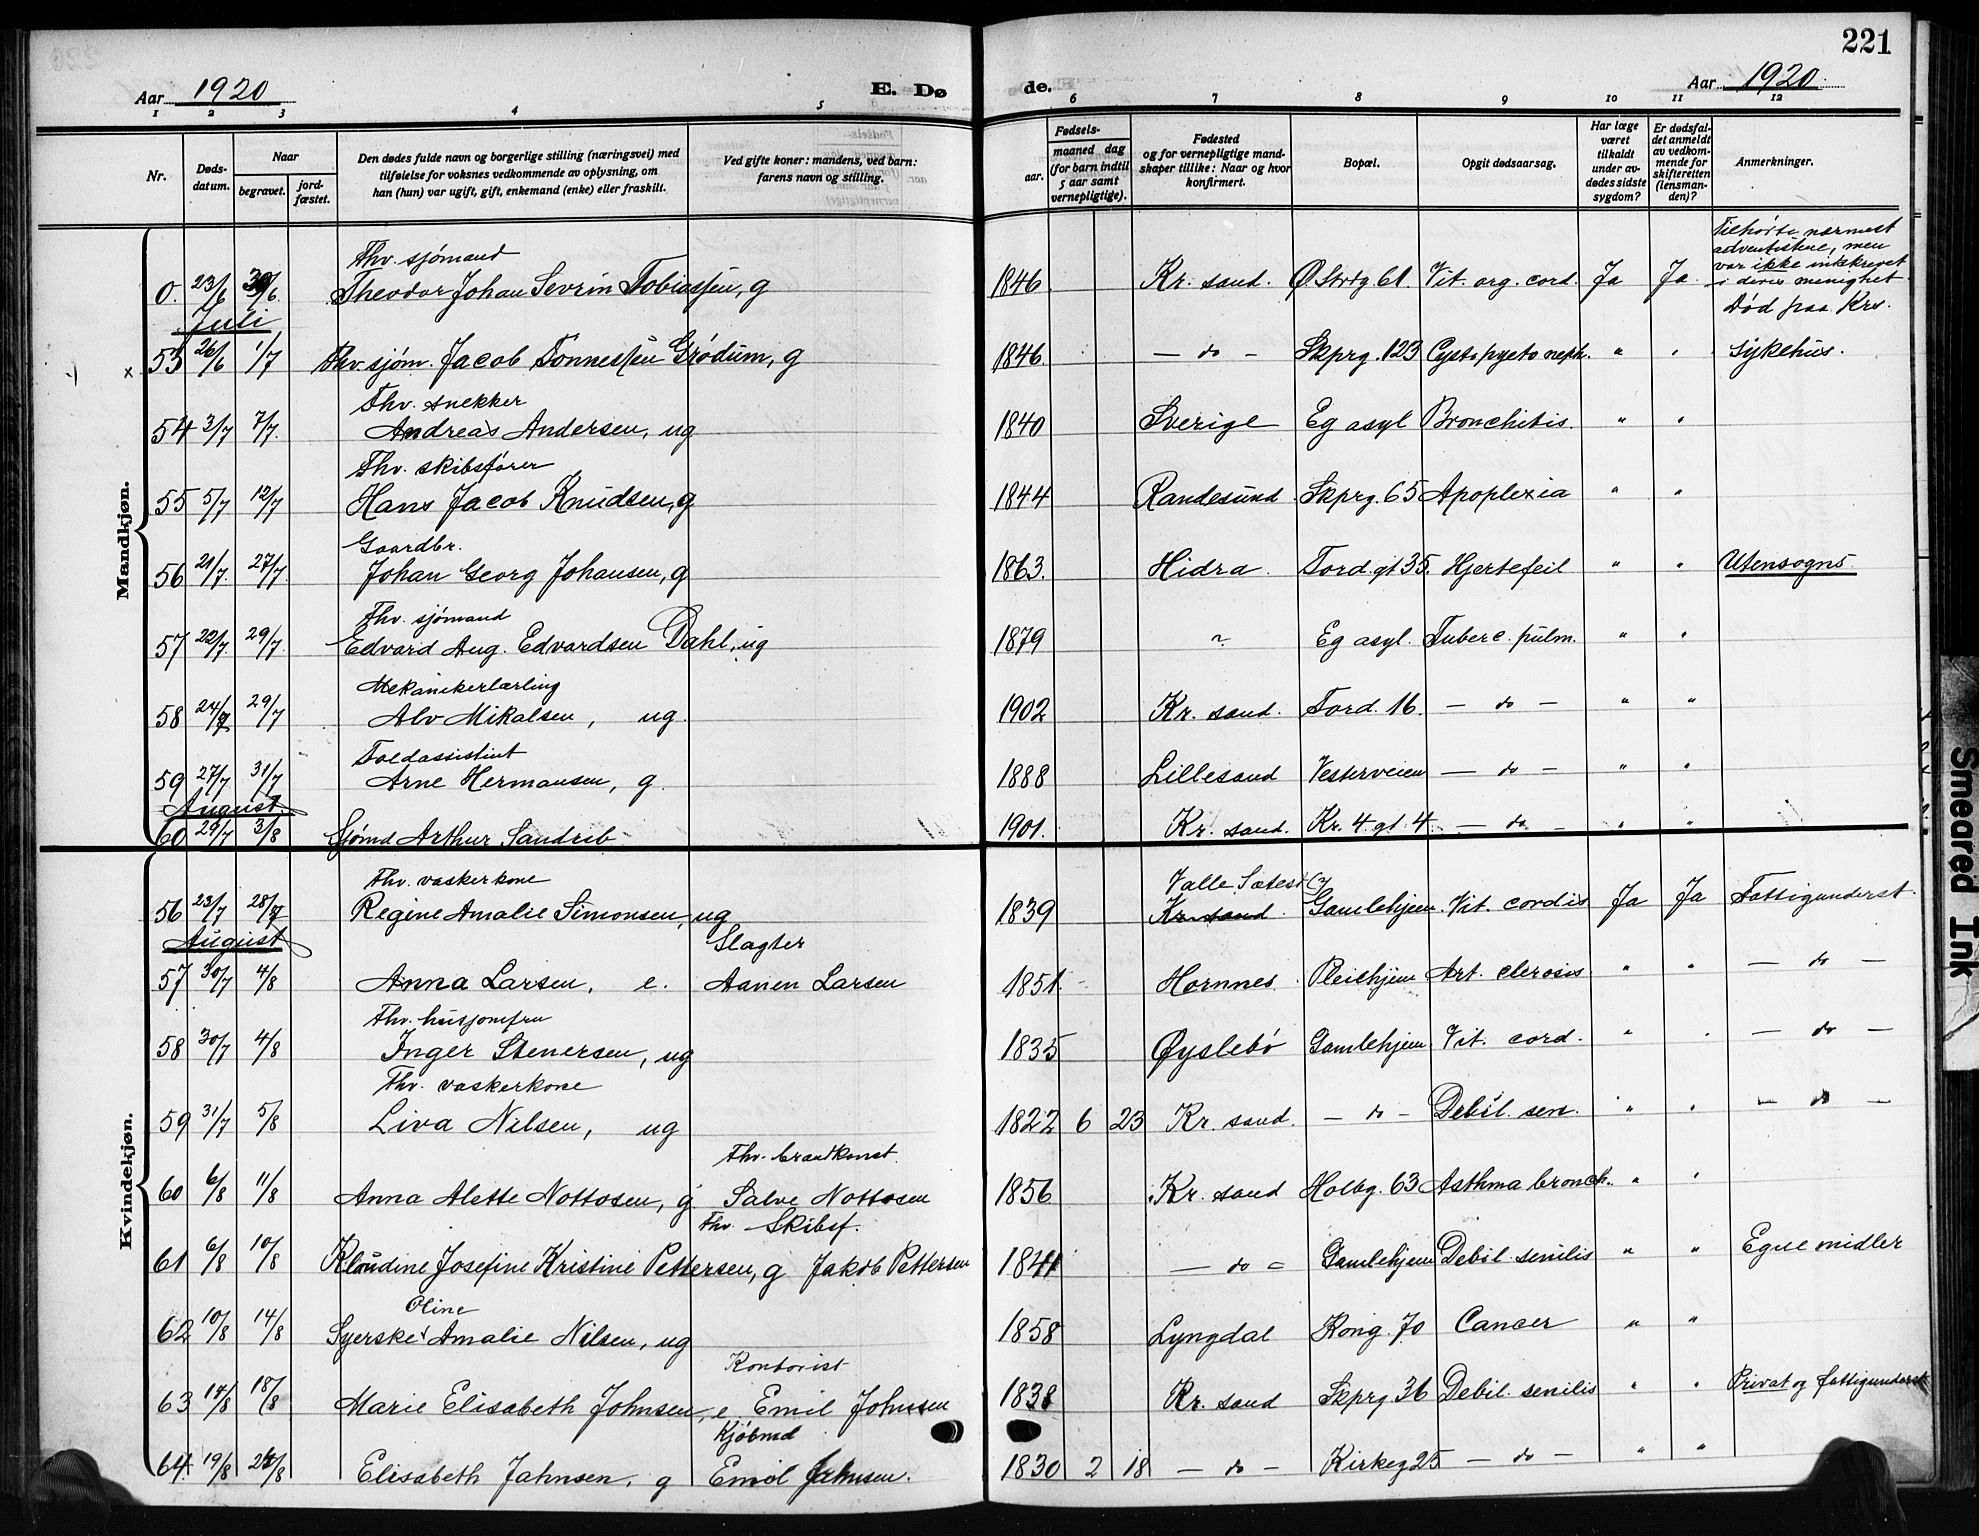 221
Aar 1920 E. Dø de. Aar 1920.
1 2 3 4 5 6 7 8 9 10 11 12
Nr. Døds-datum. Naar begravet. jord-fæstet. Den dødes fulde navn og borgerlige stilling (næringsvei) med tilføielse for voksnes vedkommende av oplysning, om han (hun) var ugift, gift, enkemand (enke) eller fraskilt. Ved gifte koner: mandens, ved barn: farens navn og stilling. Fødsels- aar. maaned dag (for barn indtil 5 aar samt vernepligtige). Fødested og for vernepligtige mand-skaper tillike: Naar og hvor konfirmert. Bopæl. Opgit dødsaarsag. Har læge været tilkaldt under av-dødes sidste sygdom? Er dødsfal-det anmeldt av vedkom-mende for skifteretten (lensman-den)? Anmerkninger.
Mandkjøn.
Fhv. sjømand
0. 23/6 30/6. Theodor Johan Sevrin Tobiassen, g 1846. Kr. sand. Ø Strdg 61. Vit. org. cord. Ja Ja Tilhørte nærmest adventistene, men var ikke indskrevet i deres menighet
Juli
Død paa Krs.
x 53 26/6 1/7 Fhv. sjøm. Jacob Tønnessen Grødum, g 1846. — do — Skprg. 123 Cysto pyelo neph. " " Sykehus.
Fhv. snekker
54 3/7 7/7. Andreas Andersen, ug 1840 Sverige Eg asyl Bronchitis. " "
Fhv. skibsfører
55 5/7 12/7 Hans Jacob Knudsen, g 1844 Randesund Skprg. 65 Apoplexia " "
Gaardbr.
56 21/7. 27/7 Johan Georg Johansen, g 1863. Hidra. Tord. gt 35. Hjertefeil " " Utensogns
Fhv. sjømand
57 22/7 29/7 Edvard Aug. Edvardsen Dahl, ug 1879 ~ Eg asyl. Tuberc. pulm. " "
Mekanikerlærling
58 24/7 29/7 Alv Mikalsen, ug. 1902 Kr. sand. Tord. 16. — do — " "
Toldassistent
59 27/7 31/7 Arne Hermansen, g. 1888 Lillesand Vesterveien — do — " "
August
60 29/7 3/8 Sjømd Arthur Sandrib 1901. Kr. sand. Kr. 4. gt. 4 — do — " "
Kvindekjøn.
Fhv. vaskerkone Valle Sætesd
56 23/7 28/7 Regine Amalie Simonsen, ug 1839 Kr. sand. Gamlehjem. Vit. cordis Ja Ja Fattigunderst.
August Slagter
57 30/7 4/8 Anna Larsen, e. Aanen Larsen 1851. Hornnes. Pleiehjem Art. clerosis " " — do —
Fhv. husjomfru
58 30/7 4/8 Inger Stenersen, ug 1835 Øyslebø Gamlehjem. Vit. cord. " . — do —
Fhv. vaskerkone
59 31/7 5/8 Liva Nilsen, ug 1822 6 23 Kr. sand. — do — Debil. sen. " " — do —
Fhv. brandkonst.
60 6/8 11/8 Anna Alette Nottosen, g Salve Nottosen 1856 Kr. sand Holbg. 63 Asthma bronch. " "
Fhv. Skibsf.
61 6/8 10/8 Klaudine Josefine Kristine Pettersen, g Jakob Pettersen 1841 — do — Gamlehjem Debil senilis " " Egne midler
Oline
62 10/8 14/8 Syerske Amalie Nilsen, ug 1858 Lyngdal Kong. 70 Cancer " "
Kontorist
63 14/8 18/8 Marie Elisabeth Johnsen, e Emil Johnsen 1838 Kr. sand Skprg 36 Debil. senilis " " Privat og fattigunderst
Kjøbmd
64 19/8 24/8 Elisabeth Jahnsen, g Emil Jahnsen. 1830 2 18 — do — Kirkeg 25 — do — " "
Smeared Ink